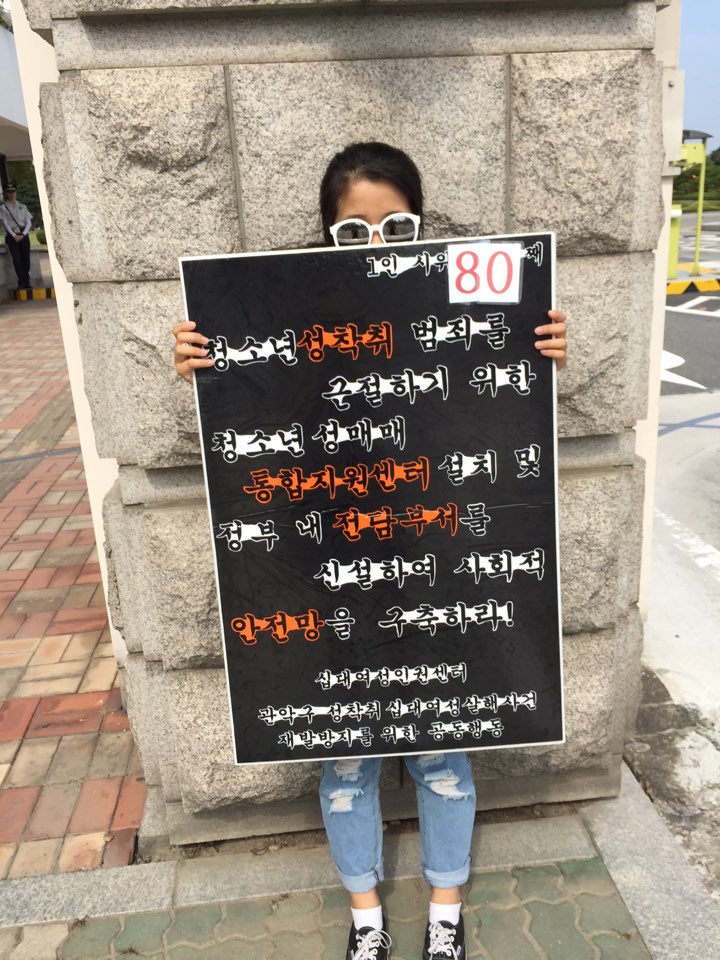 1인 시위 80 째
청소년성착취 범죄를
군절하기 위한
청소년 성매매
통합지원센터 설치 및
정부 내 전담부서를
신설하여 사회적
안전망을 구축하라!
십대여성인권센터
관악구 성착취 십대여성살해사건
재발방지를 위한 공동행동